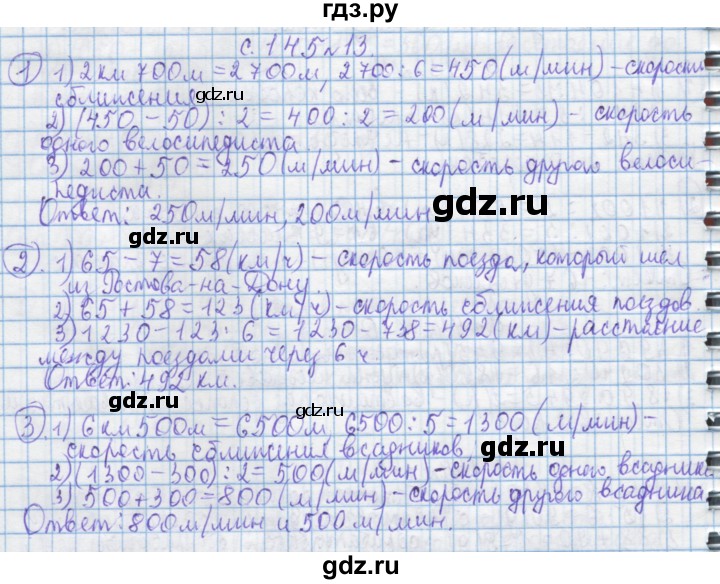 гдз.ру
с. 145 №13
① 1) 2 км 700 м = 2700 м, 2700 : 6 = 450 (м/мин) – скорость
сближения
2) (450 – 50) : 2 = 400 : 2 = 200 (м/мин) – скорость
одного велосипедиста.
3) 200 + 50 = 250 (м/мин) – скорость другого велоси-
педиста.
Ответ: 250 м/мин, 200 м/мин
② 1) 65 – 7 = 58 (км/ч) – скорость поезда, который шел
из Ростова-на-Дону.
2) 65 + 58 = 123 (км/ч) – скорость сближения поездов.
3) 1230 – 123 · 6 = 1230 – 738 = 492 (км) – расстояние
между поездами через 6 ч.
Ответ: 492 км.
③ 1) 6 км 500 м = 6500 м 6500 : 5 = 1300 (м/мин) –
скорость сближения всадников
2) (1300 – 300) : 2 = 500 (м/мин) – скорость одного всадника
3) 500 + 300 = 800 (м/мин) – скорость другого всадника
Ответ: 800 м/мин и 500 м/мин.
gdz.ru
gdz.ru
gdz.ru
gdz.ru
gdz.ru
gdz.ru